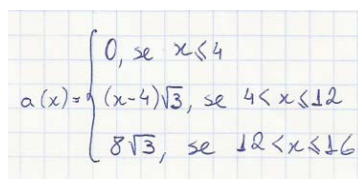 0, se x⩽4
a(x)= (x-4)√3, se 4<x⩽12
8√3, se 12<x⩽16